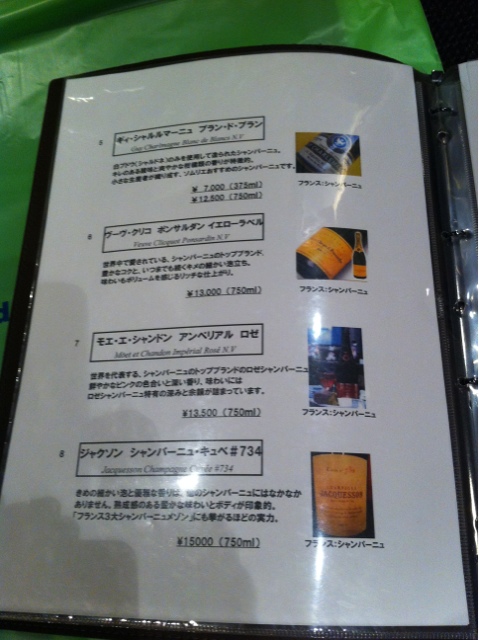 5
ギィ・シャルルマーニュ ブラン・ド・ブラン
Guy Charlmagne Blanc de Blancs N.V
白ブドウ(シャルドネ)のみを使用して造られたシャンパーニュ。
キレのある酸味と爽やかな柑橘類の香りが特徴的。
小さな生産者が織り成す、ソムリエおすすめのシャンパーニュです。
¥ 7,000 (375ml)
¥12,500 (750ml)
フランス:シャンパーニュ
6
ヴーヴ・クリコ ポンサルダン イエローラベル
Veuve Clicquot Ponsardin N.V
世界中で愛されている、シャンパーニュのトップブランド。
豊かなコクと、いつまでも続くキメの細かい泡立ち。
味わいもボリュームを感じるリッチな仕上がり。
¥13,000 (750ml)
フランス:シャンパーニュ
7
モエ・エ・シャンドン アンペリアル ロゼ
Möet et Chandon Impérial Rosé N.V
世界を代表する、シャンパーニュのトップブランドのロゼシャンパーニュ
鮮やかなピンクの色合いと深い香り、味わいには
ロゼシャンパーニュ特有の深みと余韻が詰まっています。
¥13,500 (750ml)
フランス:シャンパーニュ
8
ジャクソン シャンパーニュ・キュベ#734
Jacquesson Champagne Cuvée #734
きめの細かい泡と優雅な香りは、他のシャンパーニュにはなかなか
ありません。熟成感のある豊かな味わいとボディが印象的。
「フランス3大シャンパーニュメゾン」にも挙がるほどの実力。
¥15000 (750ml)
JACQUESSON
フランス:シャンパーニュ